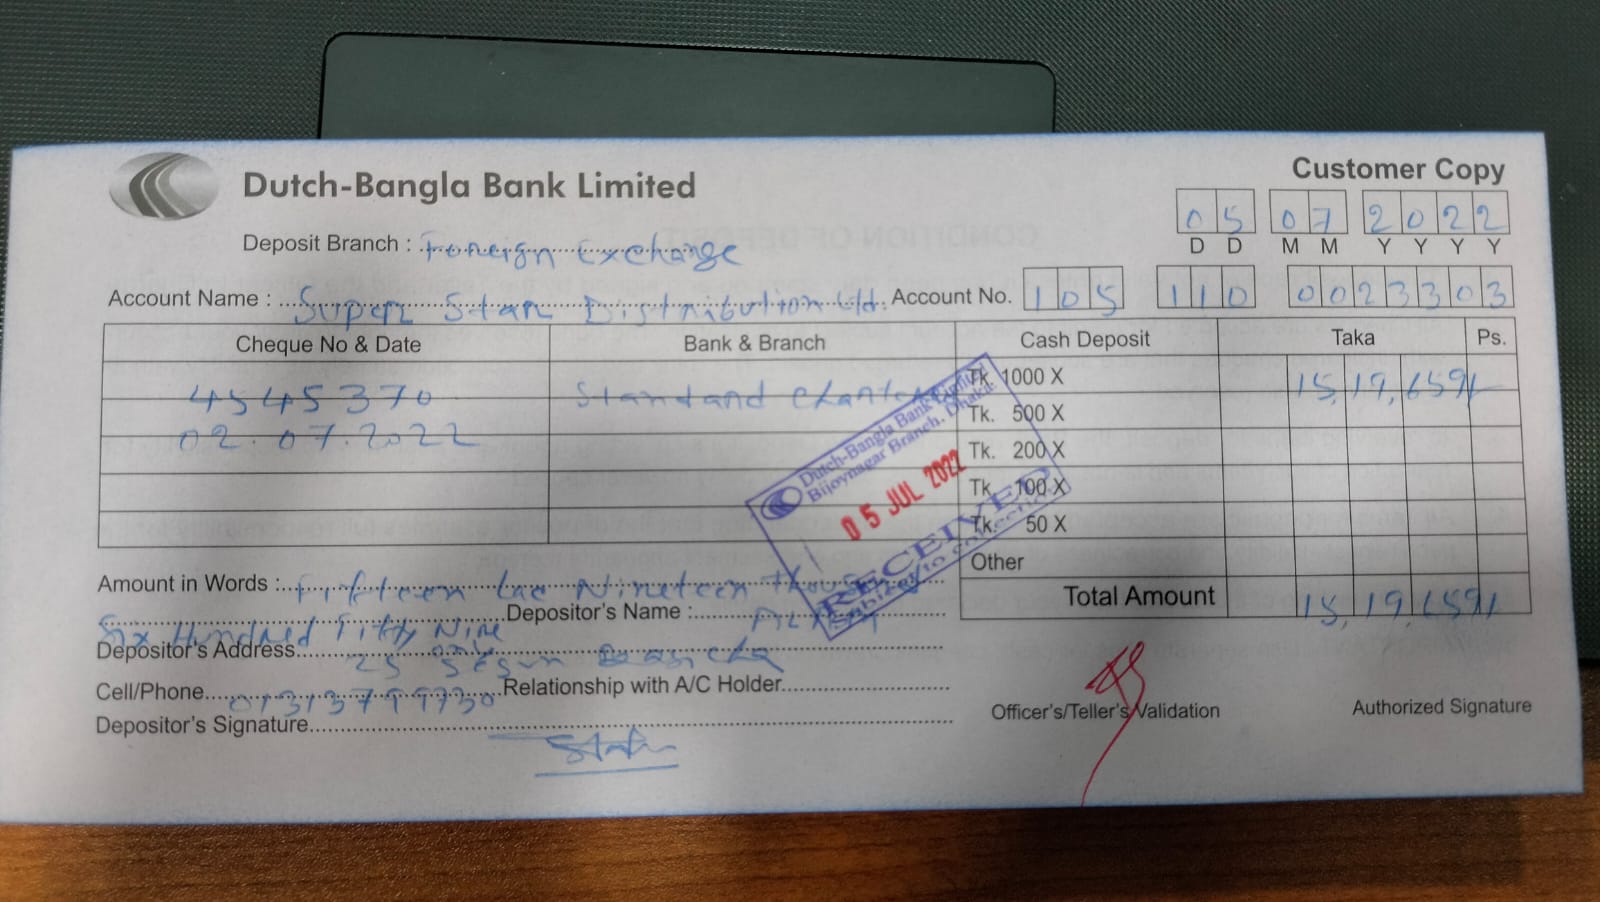 Customer Copy
Dutch-Bangla Bank Limited
05 07 2022
D D M M Y Y Y Y
Deposit Branch : Foreign Exchange
Account Name : Super Star Distribution Ltd. Account No. 105 110 0023303
Cheque No & Date Bank & Branch Cash Deposit Taka Ps.
4545370 Standard Tk. 1000 X 15,19,659/-
02.07.2022 Tk. 500 X
Tk. 200 X
Tk. 100 X
Tk. 50 X
Other
Dutch-Bangla Bank Limited
Bijoynagar Branch, Dhaka.
05 JUL 2022
RECEIVED
Subject to Collection
Total Amount 15,19,659/-
Amount in Words : Fifteen Lac Nineteen
Six Hundred Fifty Nine Depositor's Name :
only
Depositor's Address 25
Cell/Phone 01313799730 Relationship with A/C Holder
Depositor's Signature
Officer's/Teller's Validation Authorized Signature